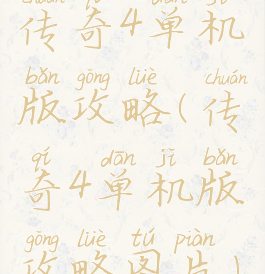 chuán qí 4 dān jī
传奇4单机
bǎn gōng lüè chuán
版攻略(传
qí dān jī bǎn
奇4单机版
gōng lüè tú piàn
攻略图片)